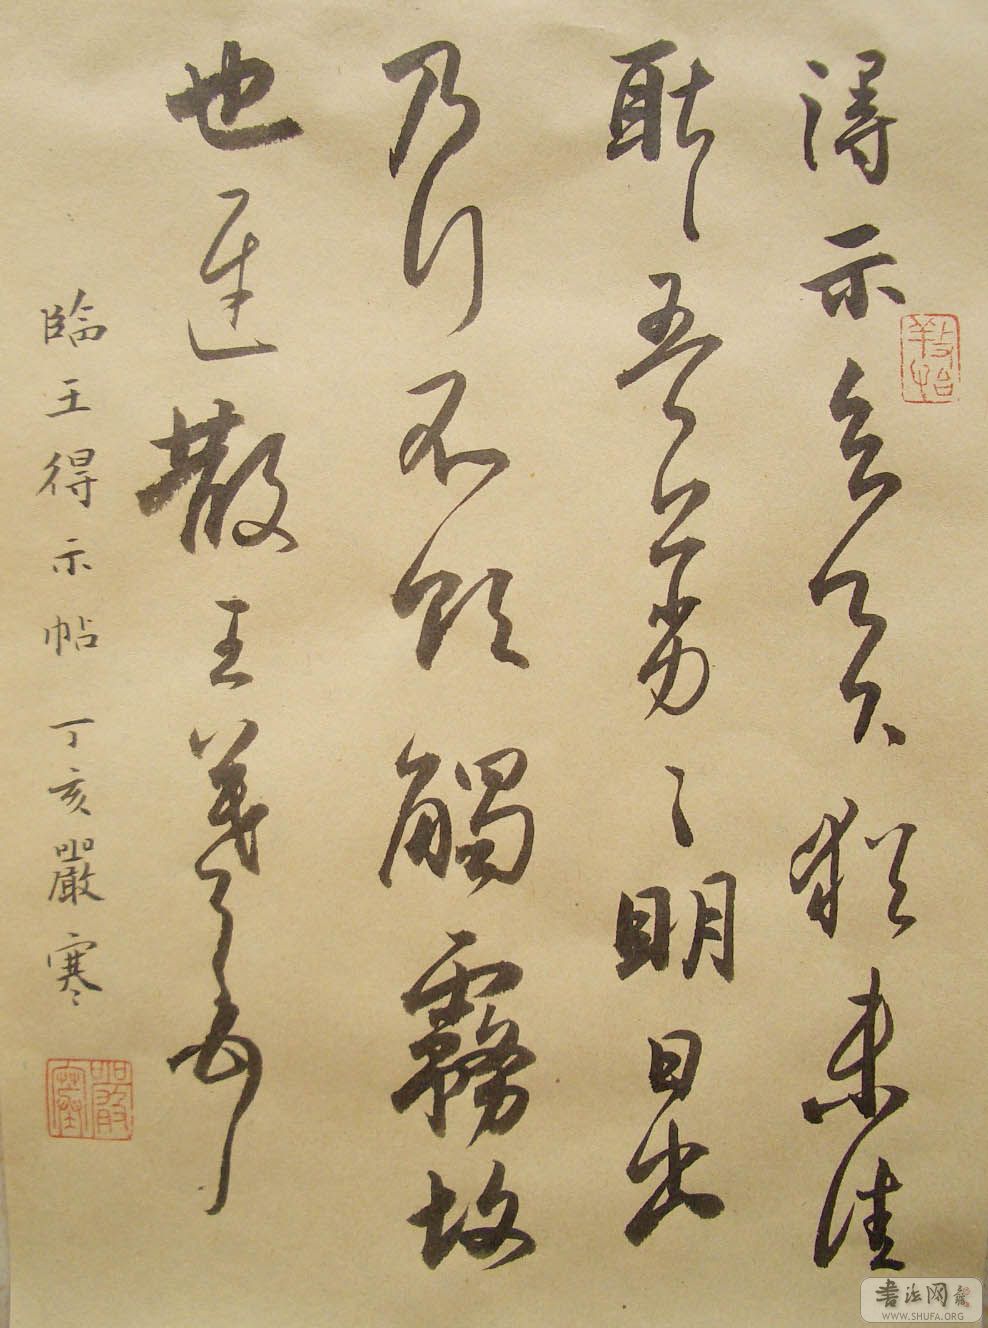 得示知足下猶未佳
耿々吾亦劣々明日出
乃行不欲觸霧故
也遲散王羲之頓首
臨王得示帖 丁亥嚴寒
嚴寒
書法网
WWW.SHUFA.ORG